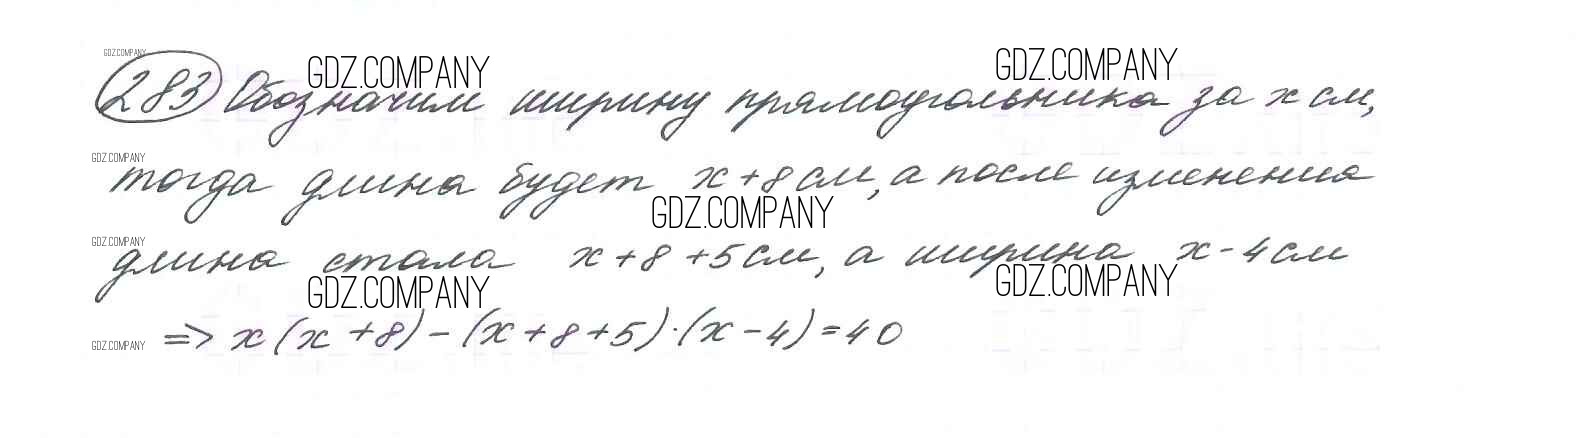 GDZ.COMPANY
GDZ.COMPANY GDZ.COMPANY
283 Обозначим ширину прямоугольника за x см,
GDZ.COMPANY
тогда длина будет x + 8 см, а после изменения
GDZ.COMPANY
GDZ.COMPANY
длина стала x + 8 + 5 см, а ширина x - 4 см
GDZ.COMPANY GDZ.COMPANY
GDZ.COMPANY
=> x(x + 8) - (x + 8 + 5)·(x - 4) = 40